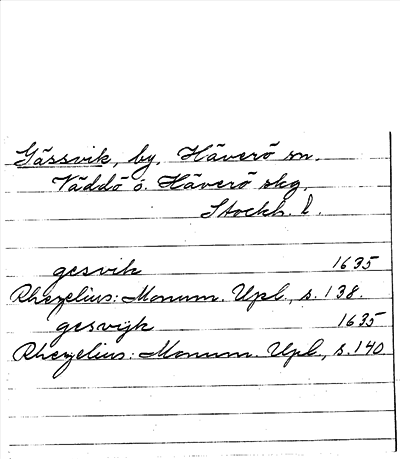 Gässvik, by, Häverö sn.
Väddö o. Häverö skg.
Stockh. l.
gesvik 1635
Rhezelius: Monum. Upl., s. 138.
gesvijk 1635
Rhezelius: Monum. Upl., s. 140.